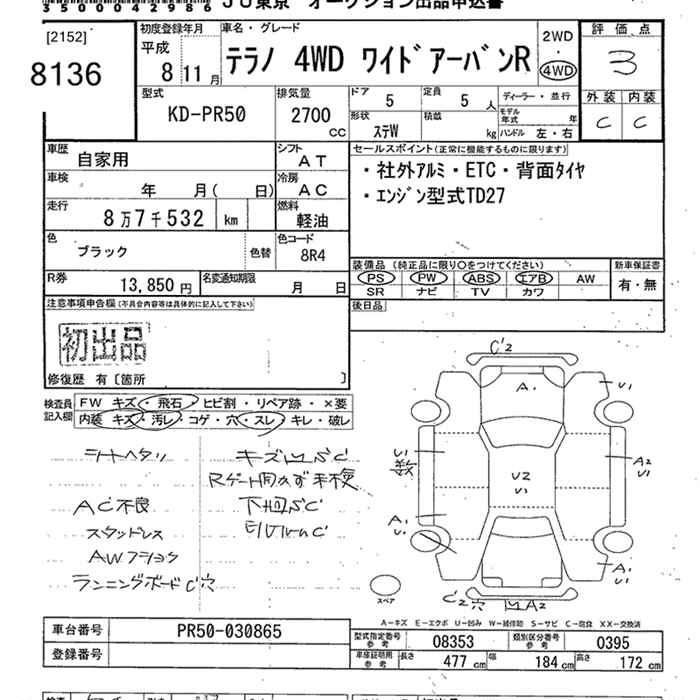 3500042986 JU東京 オークション出品申込書
[2152]
8136
初度登録年月
平成
8 11月
車名・グレード
テラノ 4WD ワイドアーバンR
2WD
・
4WD
評価点
3
外装 内装
C C
型式
KD-PR50
排気量
2700
CC
ドア 5
定員 5 人
ディーラー・並行
形状 ステW
積載 kg
モデル年式 年
ハンドル 左・右
車歴 自家用
シフト AT
車検 年 月( 日)
冷房 AC
走行 8万7千532 km
燃料 軽油
色 ブラック 色替
色コード 8R4
R券 13,850円
名変通知期限 月 日
セールスポイント(正常に機能するものに限ります)
・社外アルミ・ETC・背面タイヤ
・エンジン型式TD27
装備品(純正品に限り〇をつけてください)
新車保証書
PS PW ABS エアB AW
SR ナビ TV カワ
有・無
後日品
注意事項申告欄(不具合内容等は具体的に記入して下さい)
初出品
修復歴 有〔箇所 〕
検査員記入欄
FW キズ・飛石・ヒビ割・リペア跡・×要
内装 キズ・汚レ・コゲ・穴・スレ・キレ・破レ
シートヘタリ
キズ凹SC
Rゲート開かず未検
AC不良
下回SC
スタッドレス
AWフショク
ランニングボードC穴
C2
A1
U1
U1
数
A2
U1
U2
U1
A1
U1
A1
U1
スペア
C2穴 凹A2
A-キズ E-エクボ U-凹み W-補修跡 S-サビ C-腐食 XX-交換済
車台番号 PR50-030865
登録番号
型式指定番号 参考 08353
類別区分番号 参考 0395
車庫証明用 参考 長さ 477cm 幅 184cm 高さ 172cm